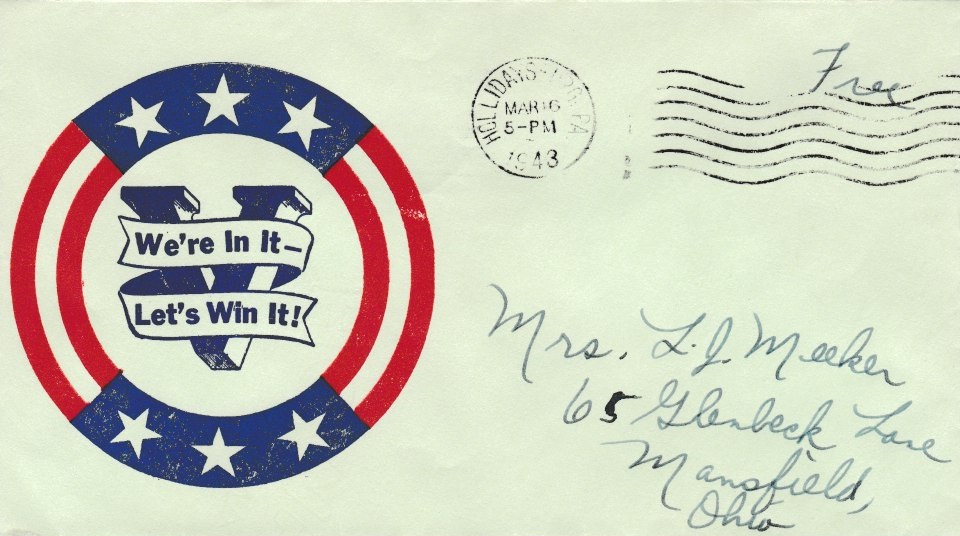 We're In It–
Let's Win It!
MAR 16
5–PM
1943
Free
Mrs. L.J. Meeker
65 Glenbeck Lane
Mansfield,
Ohio